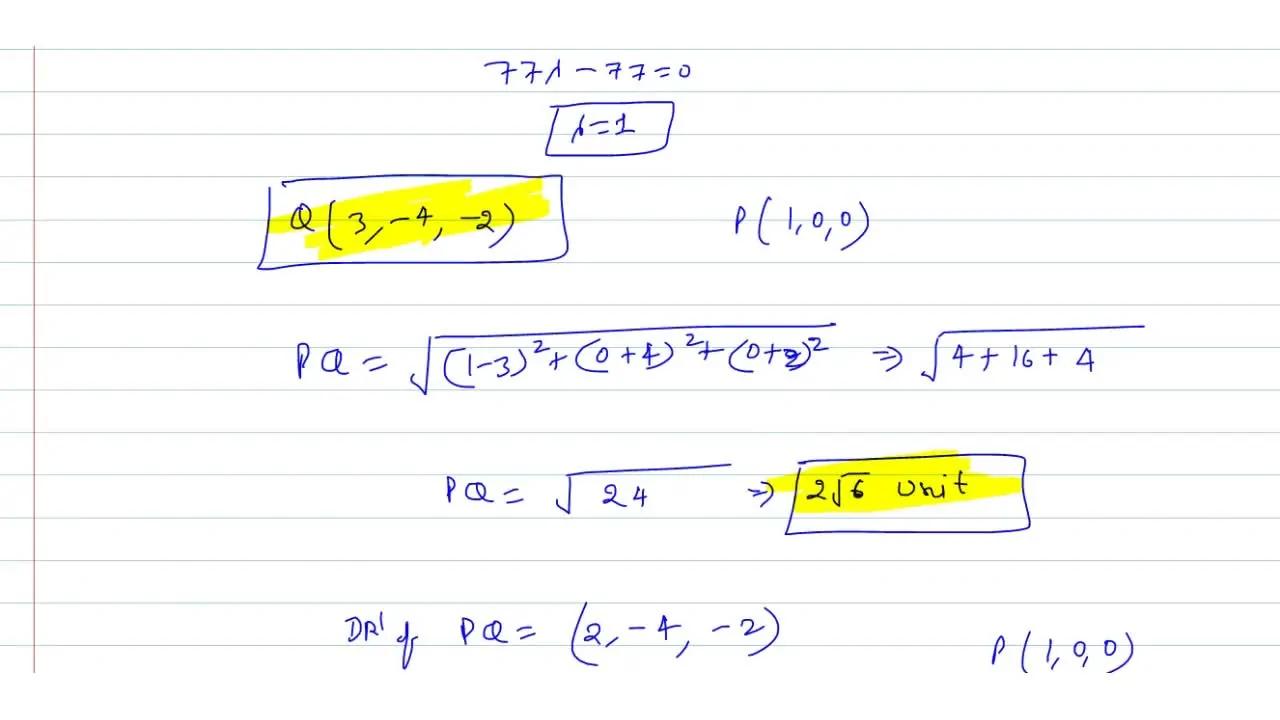 77λ - 77 = 0
λ = 1
Q (3, -4, -2) P (1, 0, 0)
PQ = √(1-3)² + (0+4)² + (0+2)² ⇒ √4 + 16 + 4
PQ = √24 ⇒ 2√6 unit
DR' of PQ = (2, -4, -2)
P (1, 0, 0)